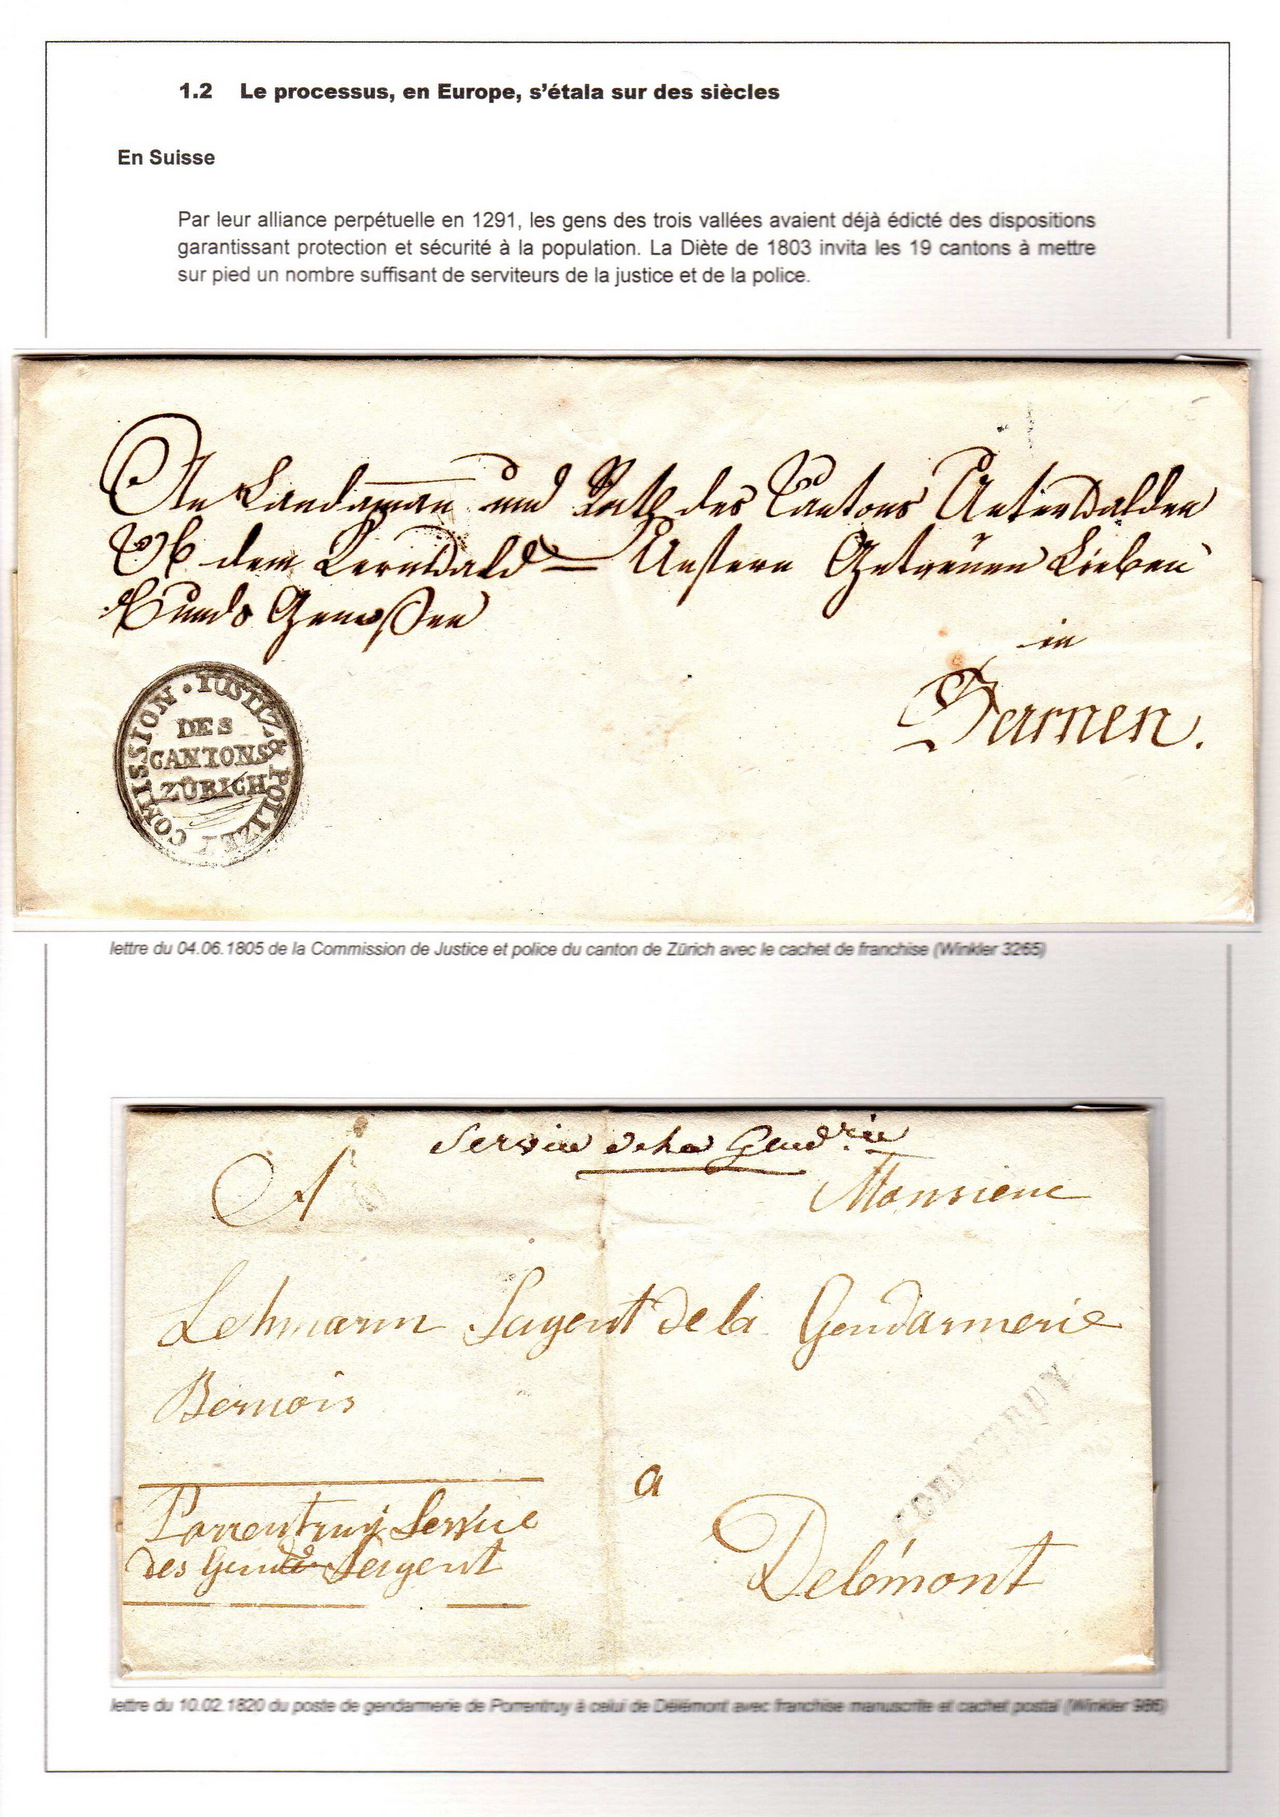 1.2 Le processus, en Europe, s'étala sur des siècles
En Suisse
Par leur alliance perpétuelle en 1291, les gens des trois vallées avaient déjà édicté des dispositions
garantissant protection et sécurité à la population. La Diète de 1803 invita les 19 cantons à mettre
sur pied un nombre suffisant de serviteurs de la justice et de la police.
An Landaman und Rath des Cantons Unterwalden
Ob dem Kernwald = Unsern Getreüen Lieben
Bunds Genoßen
in
Sarnen.
IUSTIZ & POLIZEY COMISSION
DES
CANTONS
ZÜRICH
lettre du 04.06.1805 de la Commission de Justice et police du canton de Zürich avec le cachet de franchise (Winkler 3265)
Service de la Gend.rie
A Monsieur
Lehmann Sergent de la Gendarmerie
Bernois
a
Porrentruy Service
des Sergent
Delémont
PORRENTRUY
lettre du 10.02.1820 du poste de gendarmerie de Porrentruy à celui de Délémont avec franchise manuscrite et cachet postal (Winkler 986)